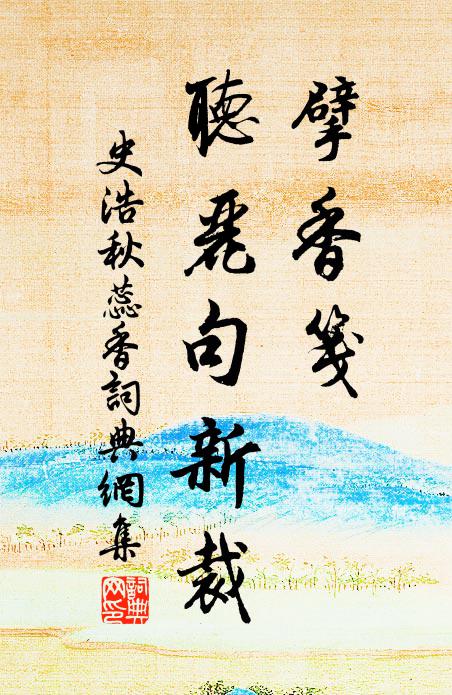 擘香箋
聽麗句新裁
史浩秋蕊香詞典網集
詞典網印